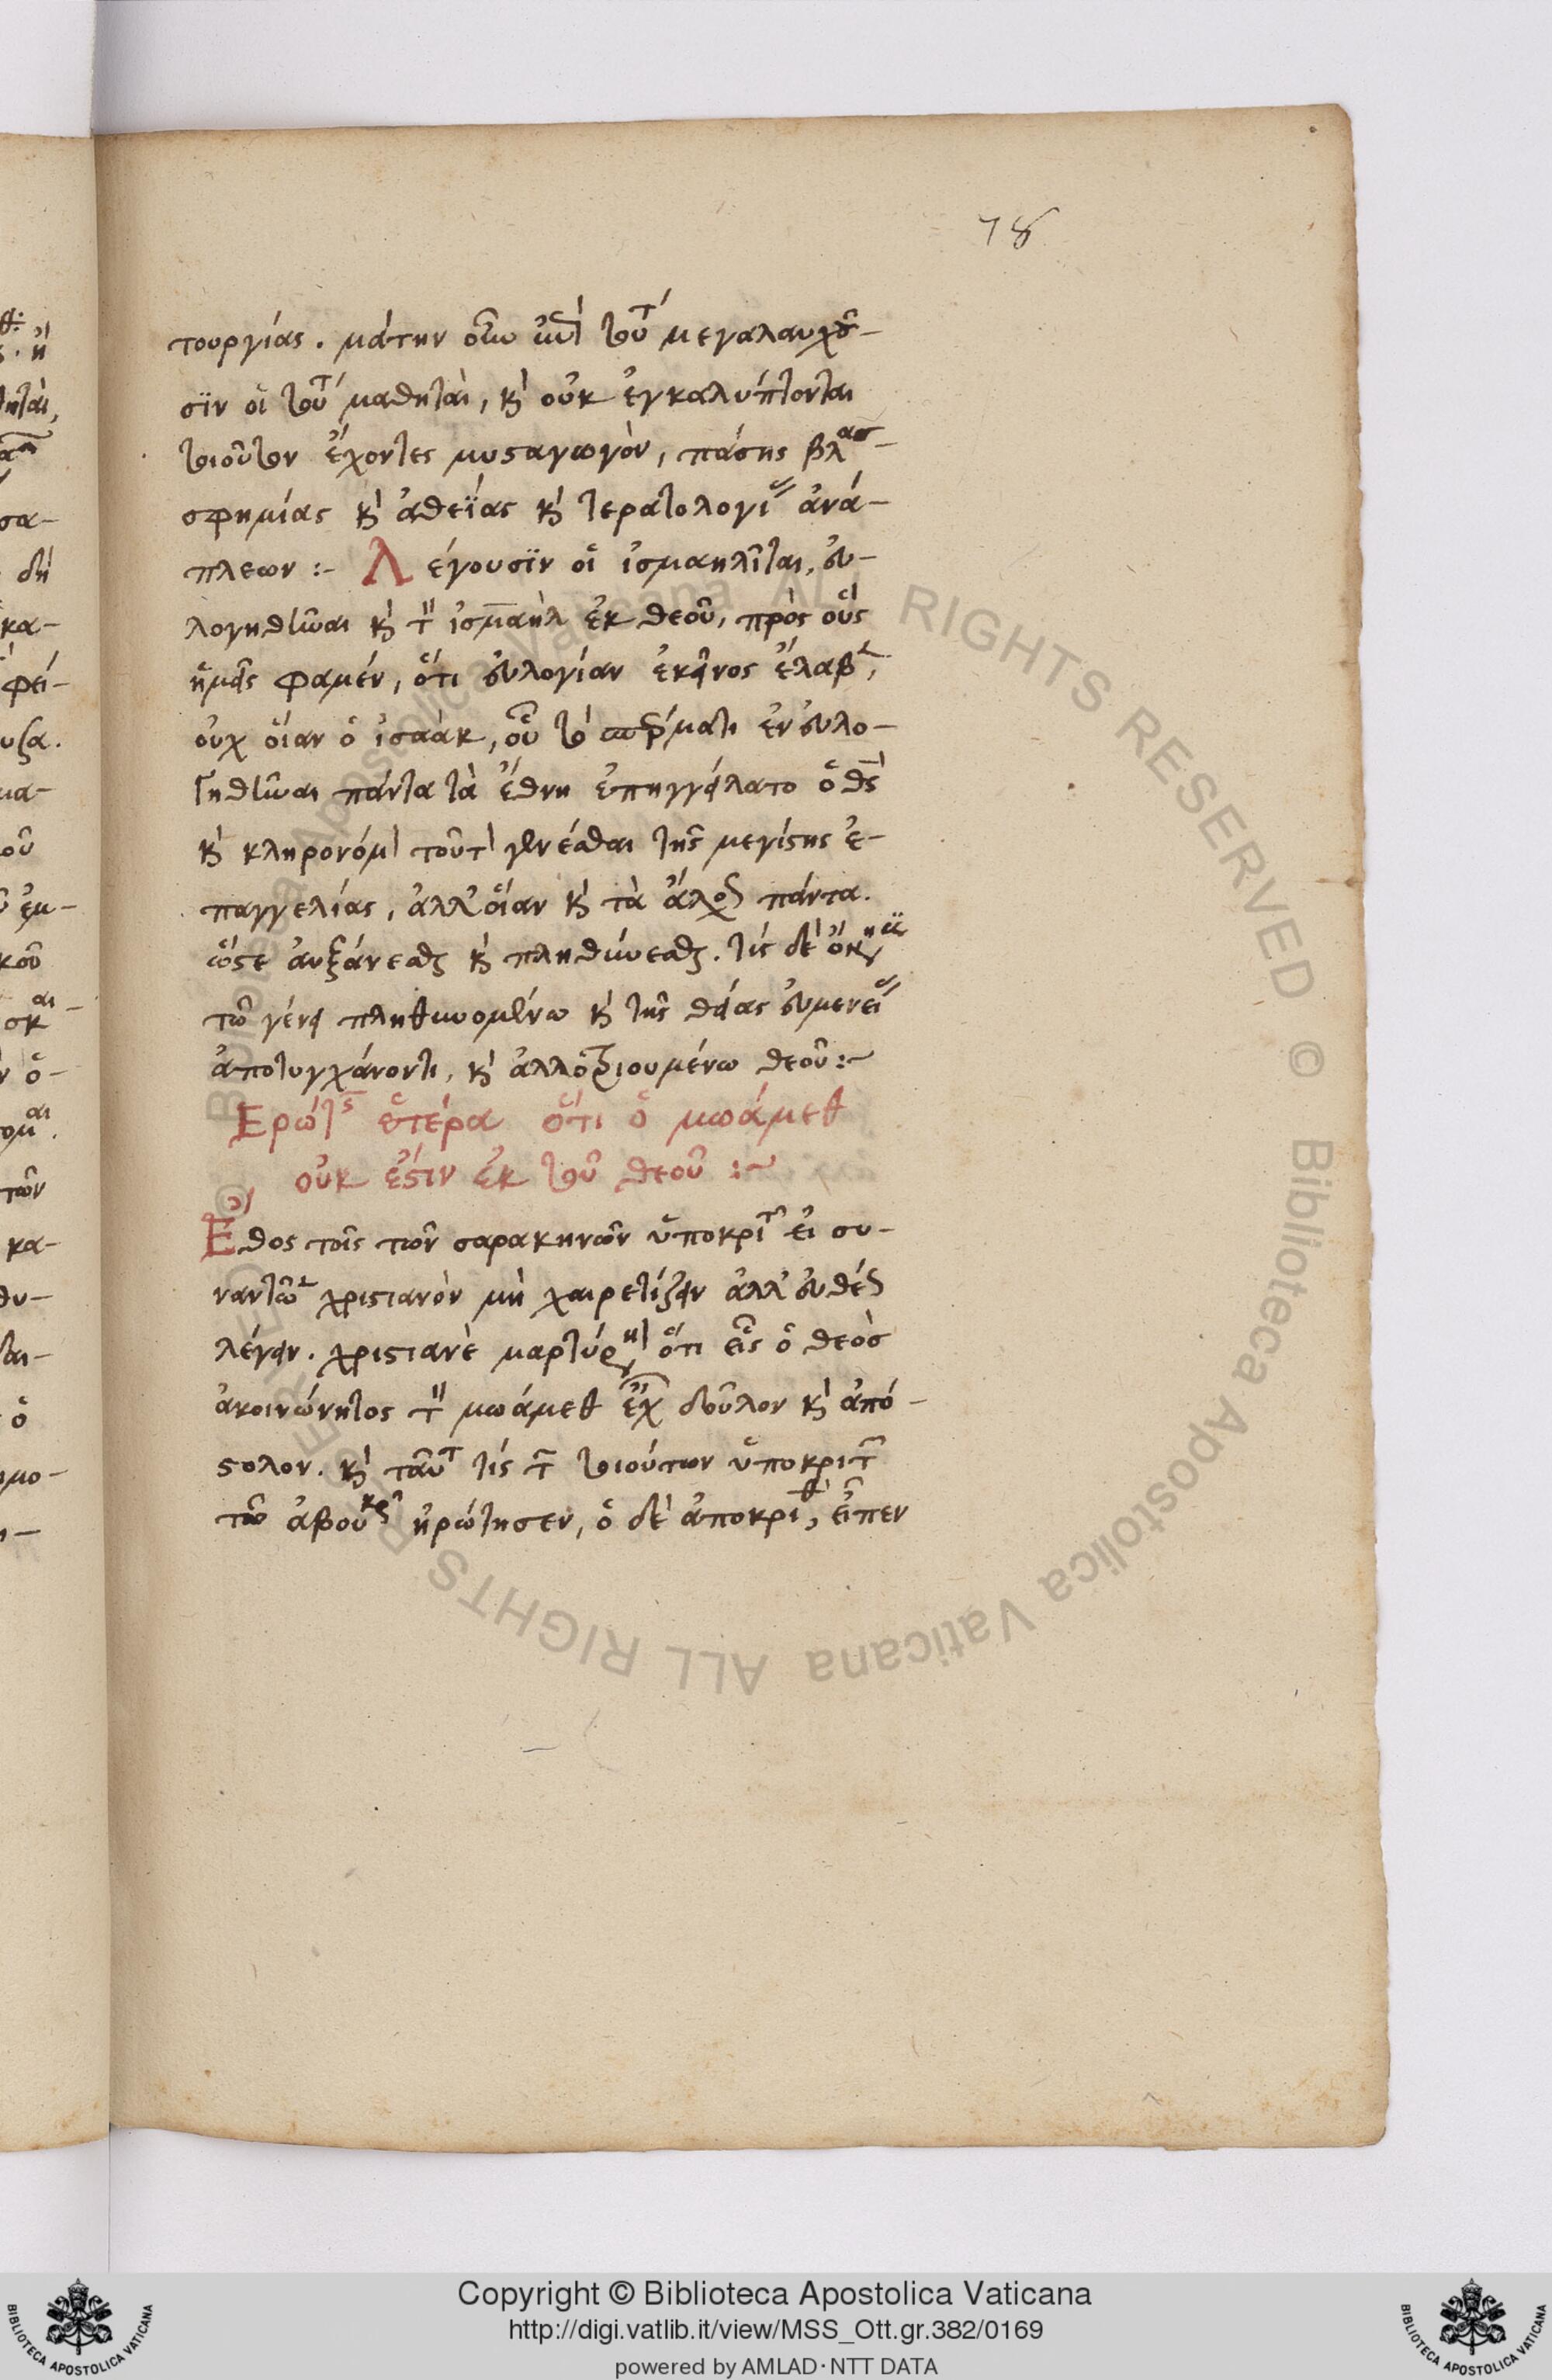 78
τουργίας. μάτην οὖν ἐπὶ τούτ μεγαλαυχοῦ-
σϊν οἱ τούτ μαθηταὶ, κὶ οὐκ ἐγκαλύπτονται
τοιοῦτον ἔχοντες μυσταγωγὸν, πάσης βλασ-
σφημίας κὶ ἀθεΐας κὶ τερατολογίας ἀνά-
πλεων :- Λέγουσϊν οἱ ἰσμαηλῖται, εὐ-
λογηθῆναι κὶ τὸν ἰσμαὴλ ἐκ θεοῦ, πρὸς οὓς
ἡμεῖς φαμέν, ὅτι εὐλογίαν ἐκεῖνος ἔλαβε,
οὐχ οἵαν ὁ ἰσαὰκ, οὗ τῷ σπέρματι ἐνευλο-
γηθῆναι πάντα τὰ ἔθνη ἐπηγγείλατο ὁ θς
κὶ κληρονόμον τοῦτον γενέσθαι τῆς μεγίστης ἐ-
παγγελίας, ἀλλ' οἵαν κὶ τὰ ἄλογα πάντα.
ὥστε αὐξάνεσθαι κὶ πληθύνεσθαι. τίς δὲ ὄνησις
τῷ γένει πληθυνομένω κὶ τῆς θείας εὐμενείας
ἀποτυγχάνοντι, κὶ ἀλλοτριουμένω θεοῦ :~
Ερώτσ ἑτέρα ὅτι ὁ μωάμεθ
οὐκ ἔστιν ἐκ τοῦ θεοῦ :~
Ἔθος τοῖς τῶν σαρακηνῶν ὑποκριτ εἰ συ-
ναντῶσι χριστιανὸν μὴ χαιρετίζειν ἀλλ' εὐθέως
λέγειν. χριστιανὲ μαρτύρησον ὅτι εἷς ὁ θεὸσ
ἀκοινώνητος τὸν μωάμεθ ἔχων δοῦλον κὶ ἀπό-
στολον. κὶ ταῦτ τίς τῶν τοιούτων ὑποκριτῶν
τὸν ἀβουκρ ἠρώτησεν, ὁ δὲ ἀποκριθ, εἶπεν
Copyright © Biblioteca Apostolica Vaticana
http://digi.vatlib.it/view/MSS_Ott.gr.382/0169
powered by AMLAD·NTT DATA
BIBLIOTECA APOSTOLICA VATICANA
BIBLIOTECA APOSTOLICA VATICANA
© Biblioteca Apostolica Vaticana ALL RIGHTS RESERVED © Biblioteca Apostolica Vaticana ALL RIGHTS RESERVED